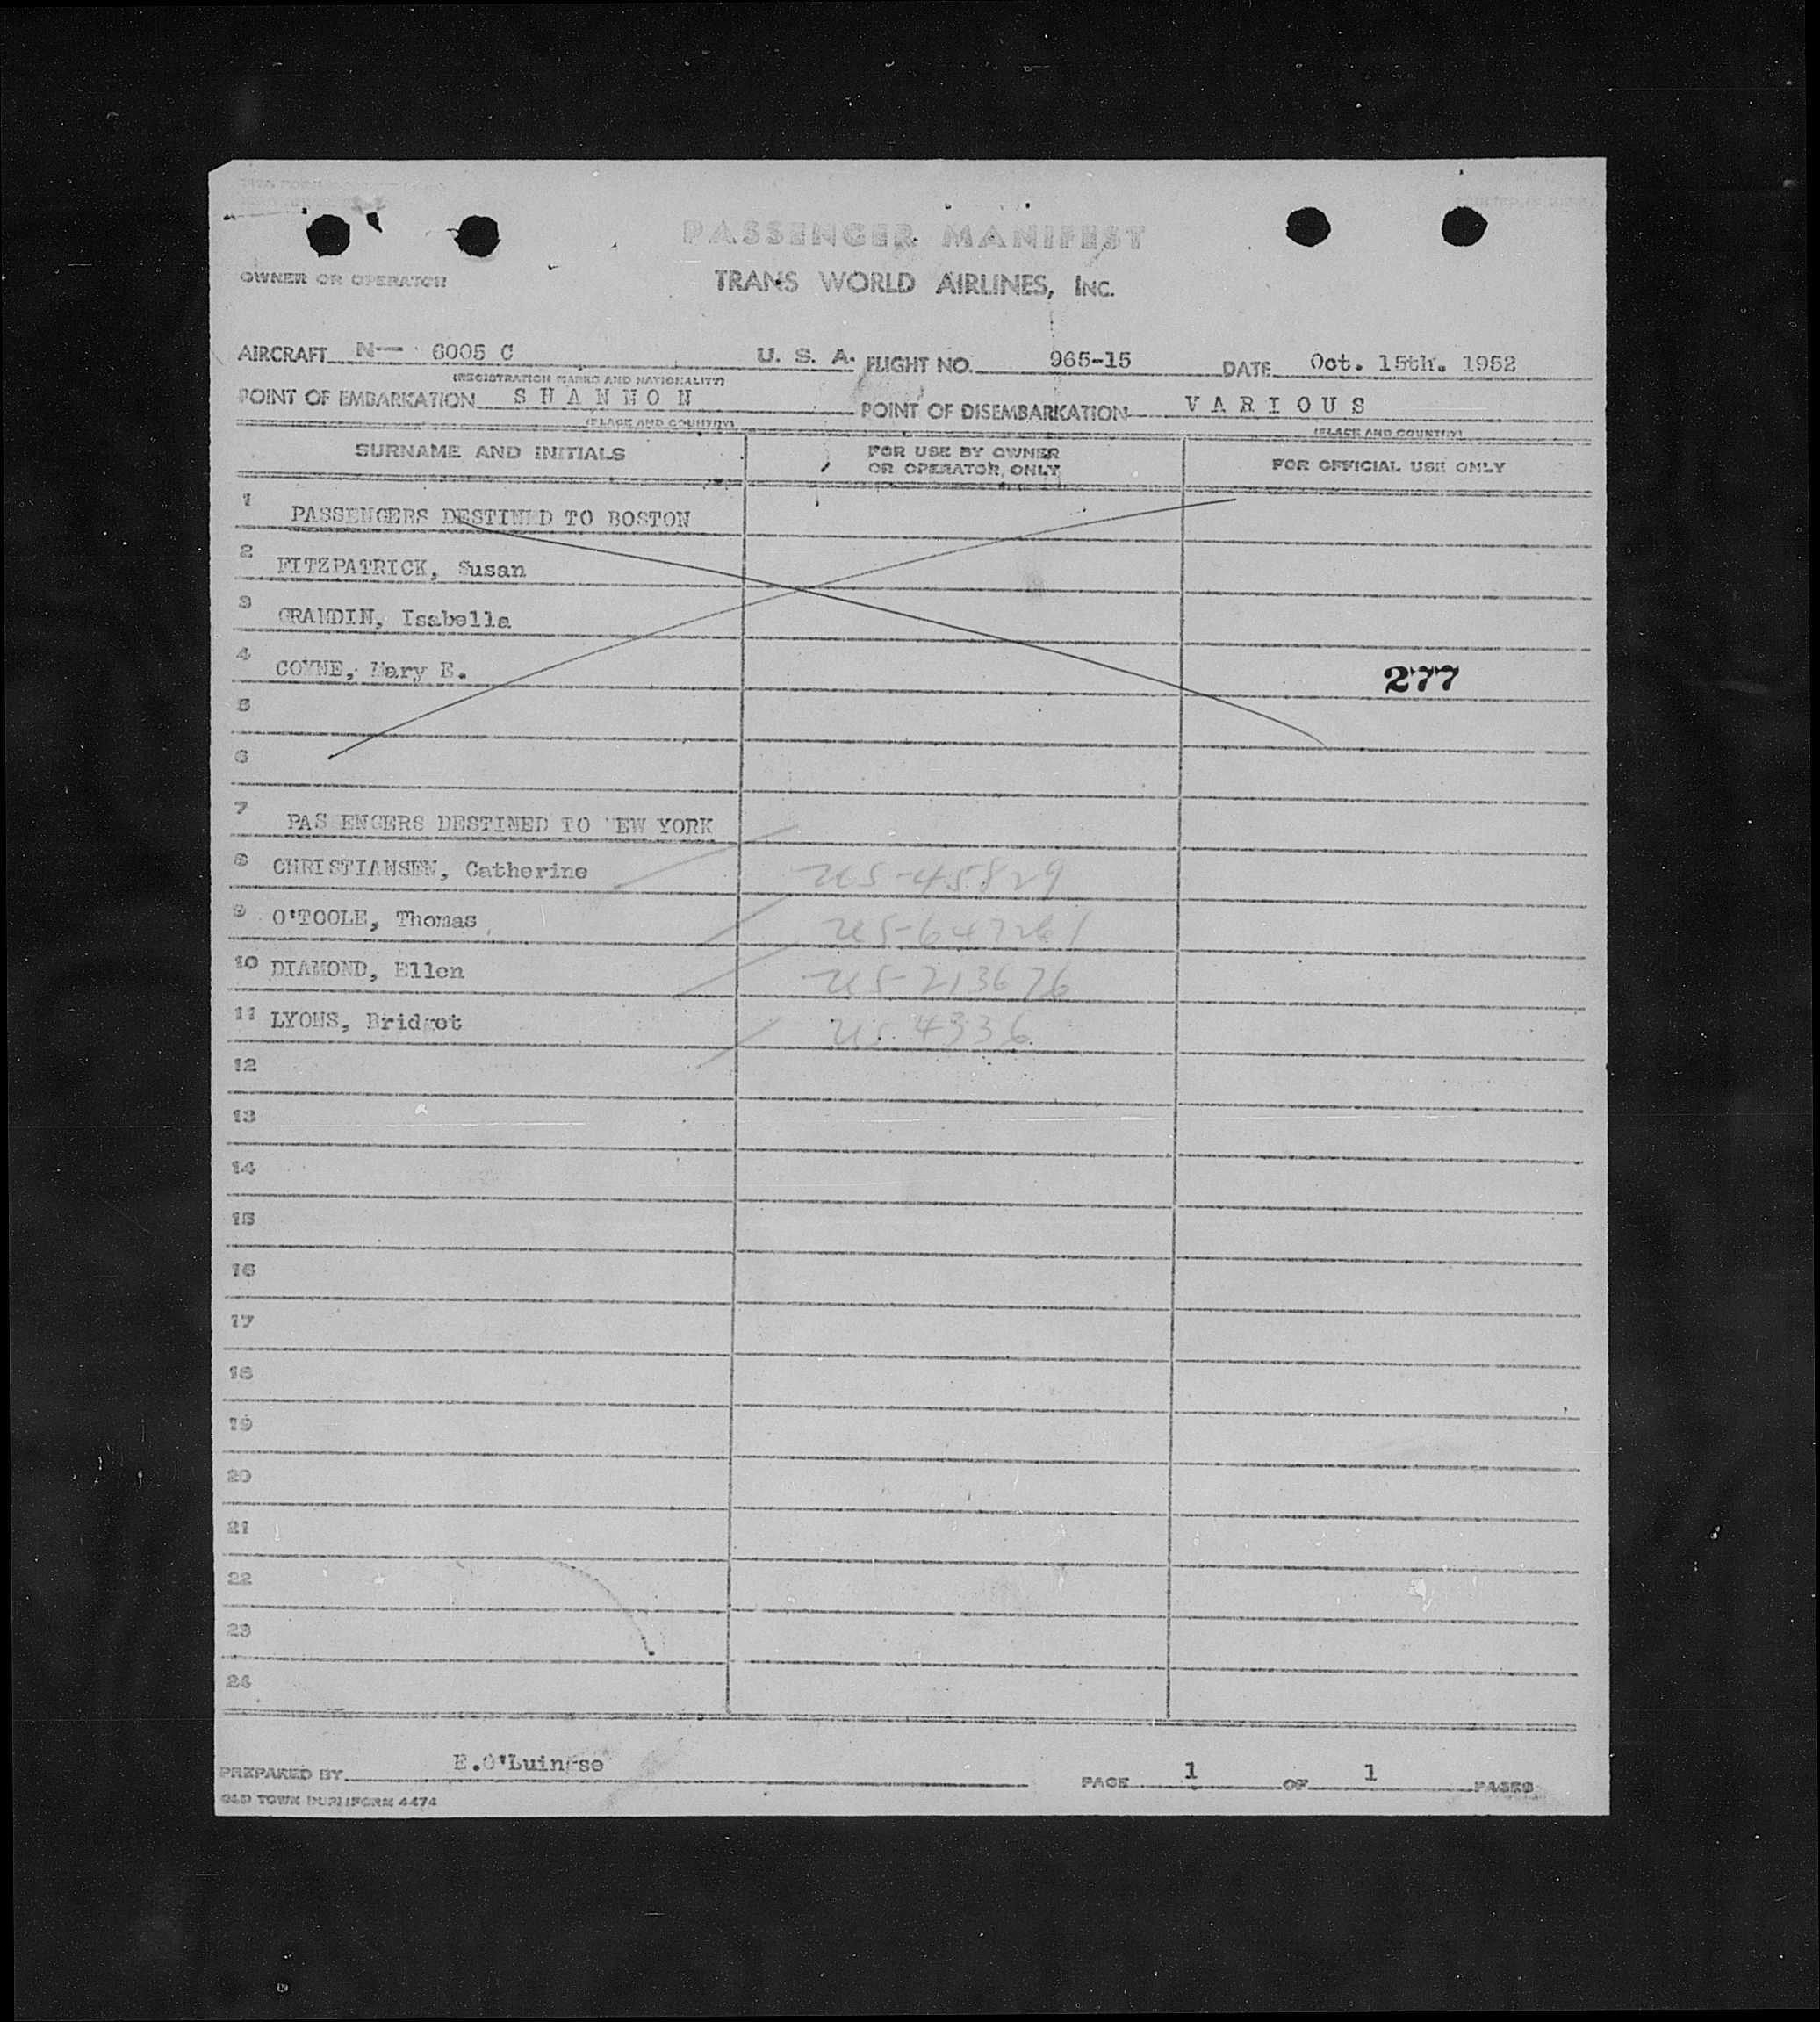 PASSENGER MANIFEST
OWNER OR OPERATOR
TRANS WORLD AIRLINES, INC.
AIRCRAFT N— 6005 C U. S. A. FLIGHT NO. 965-15 DATE Oct. 15th. 1952
(REGISTRATION MARKS AND NATIONALITY)
POINT OF EMBARKATION S H A N N O N POINT OF DISEMBARKATION V A R I O U S
(PLACE AND COUNTRY) (PLACE AND COUNTRY)
SURNAME AND INITIALS
FOR USE BY OWNER
OR OPERATOR ONLY
FOR OFFICIAL USE ONLY
1 PASSENGERS DESTINED TO BOSTON
2 FITZPATRICK, Susan
3 GRANDIN, Isabella
4 COYNE, Mary E. 277
5
6
7 PAS ENGERS DESTINED TO EW YORK
8 CHRISTIANSEN, Catherine US-45829
9 O'TOOLE, Thomas
10 DIAMOND, Ellen US-213676
11 LYONS, Bridget US 4336
12
13
14
15
16
17
18
19
20
21
22
23
24
PREPARED BY PAGE 1 OF 1 PAGES
OLD TOWN DUPLIFORM 4474